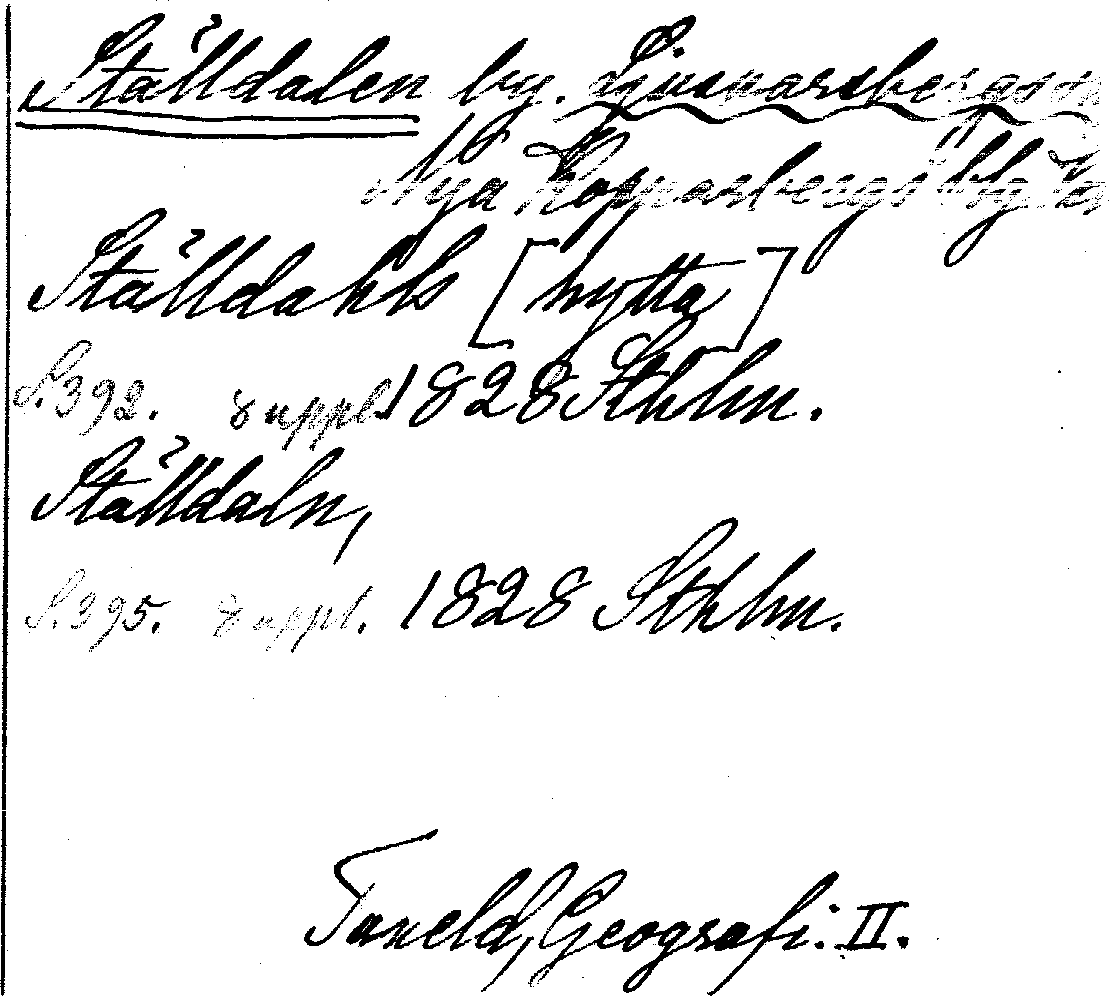 Ställdalen by. Ljusnarsbergs sn
Nya Kopparbergs blg. Ör
Ställdahls [hytta]
S. 392. suppl. 1828 Sthlm.
Ställdaln,
S. 395. suppl. 1828 Sthlm.
Tuneld, Geografi. II.